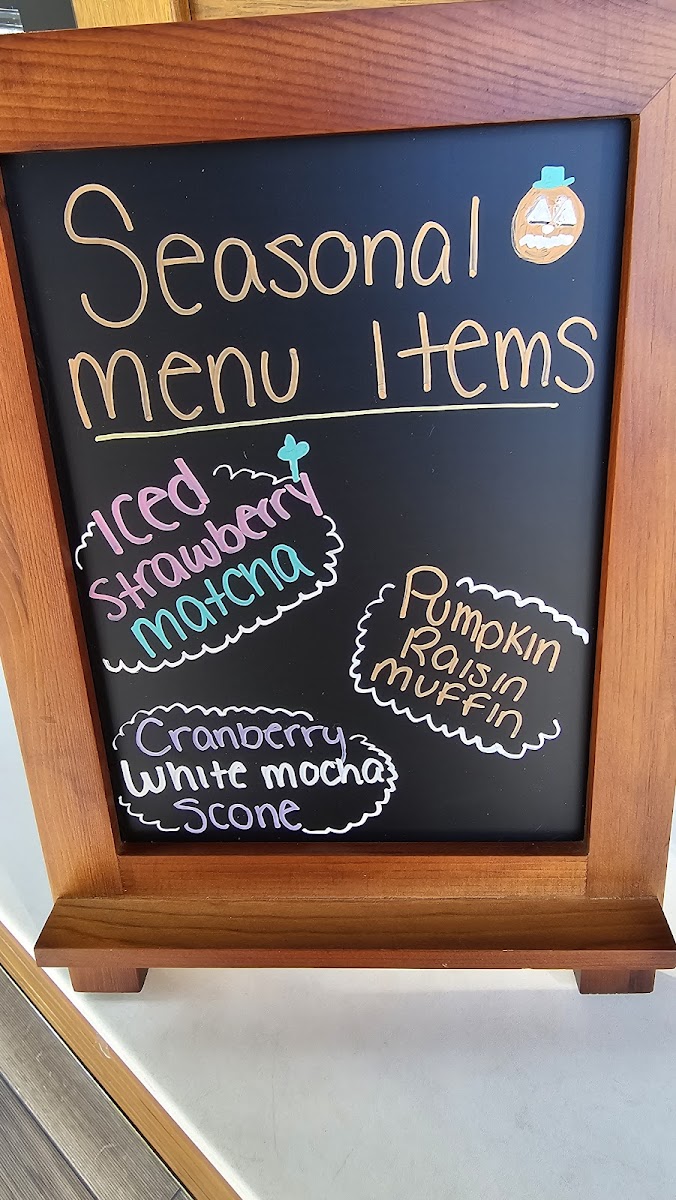 Seasonal
menu Items
Iced
Strawberry
matcha
Pumpkin
Raisin
muffin
Cranberry
White mocha
Scone